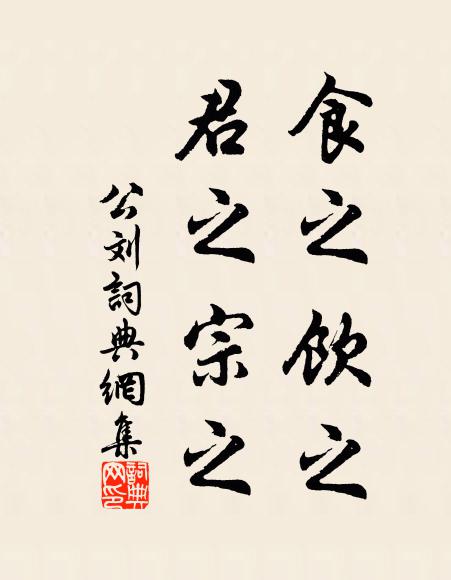 食之飲之
君之宗之
公刘詞典網集
詞典网印